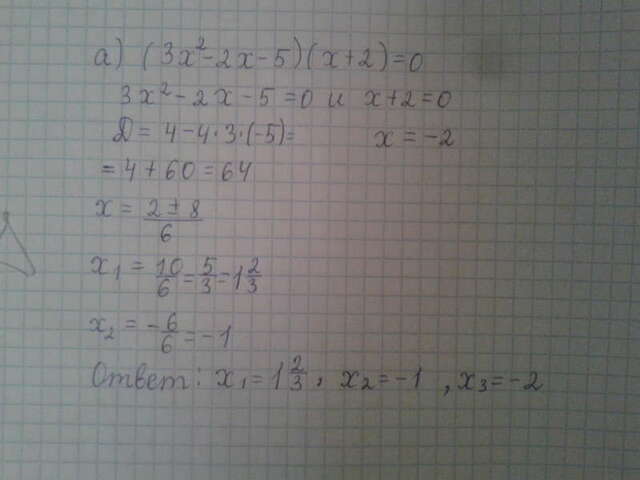 а) (3x²-2x-5)(x+2)=0
3x²-2x-5=0 и x+2=0
Д= 4-4·3·(-5)= x=-2
=4+60=64
x = (2±8)/6
x₁ = 10/6 = 5/3 = 1 2/3
x₂ = -6/6 = -1
Ответ: x₁=1 2/3, x₂=-1, x₃=-2